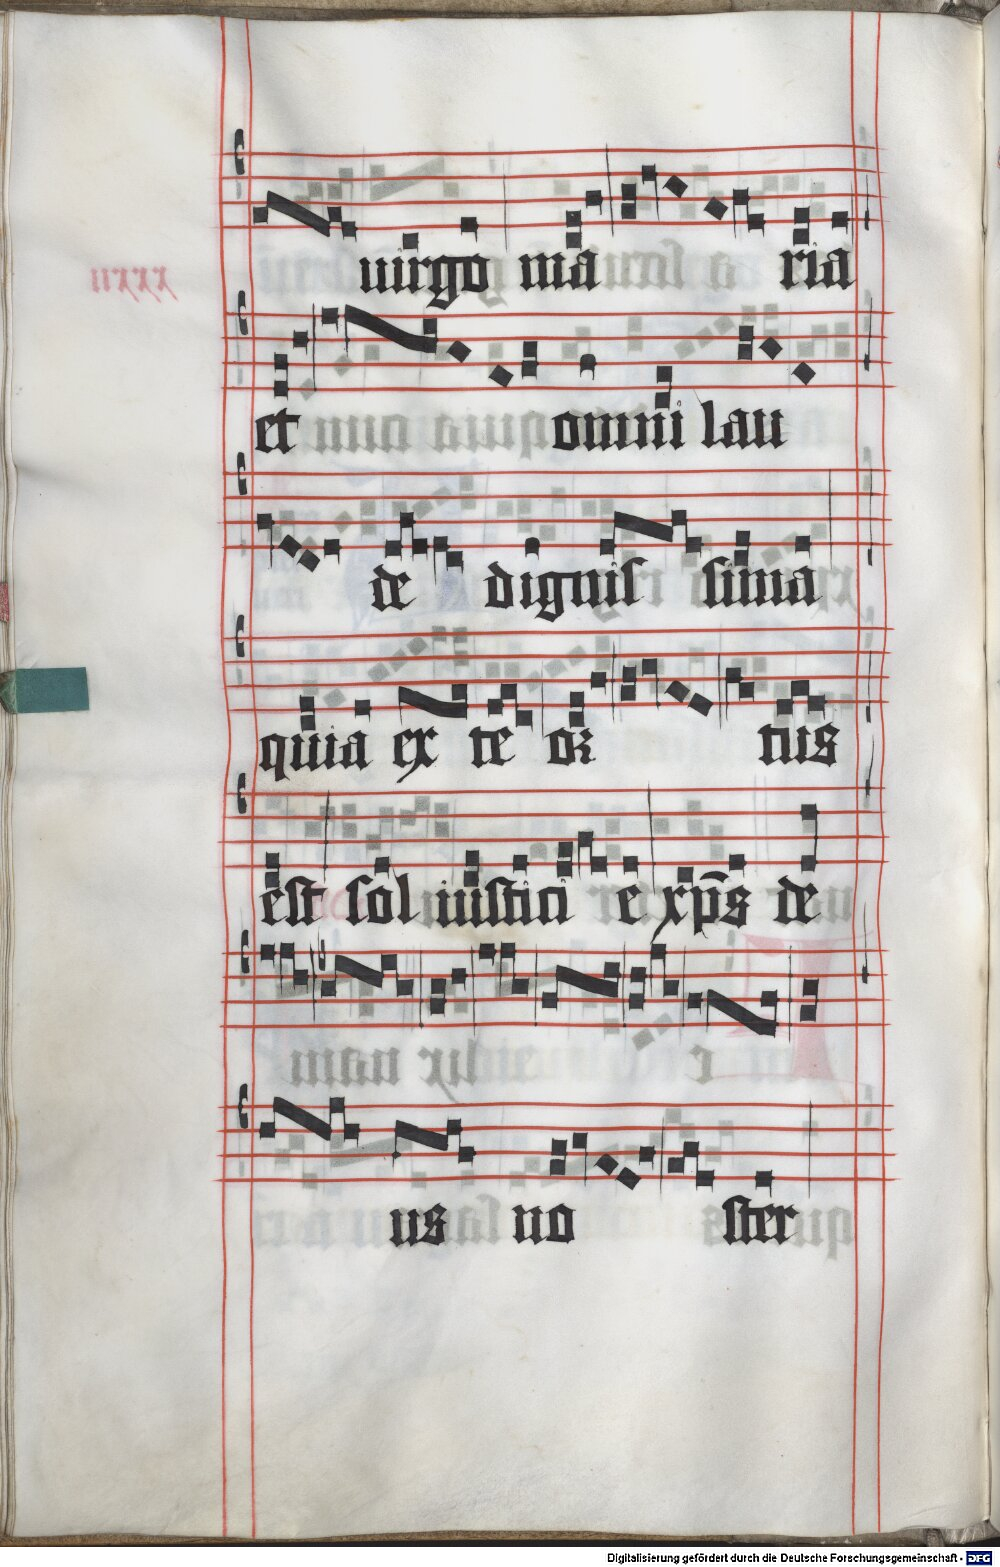 uirgo ma ria
et omni lau
de dignis sima
quia ex te or tus
est sol iustici e xp̄s de
us no ster
Digitalisierung gefördert durch die Deutsche Forschungsgemeinschaft - DFG